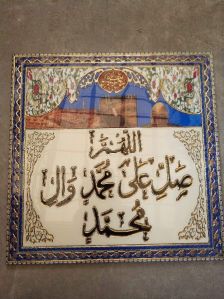 اللهم
صل على محمد وآل
محمد